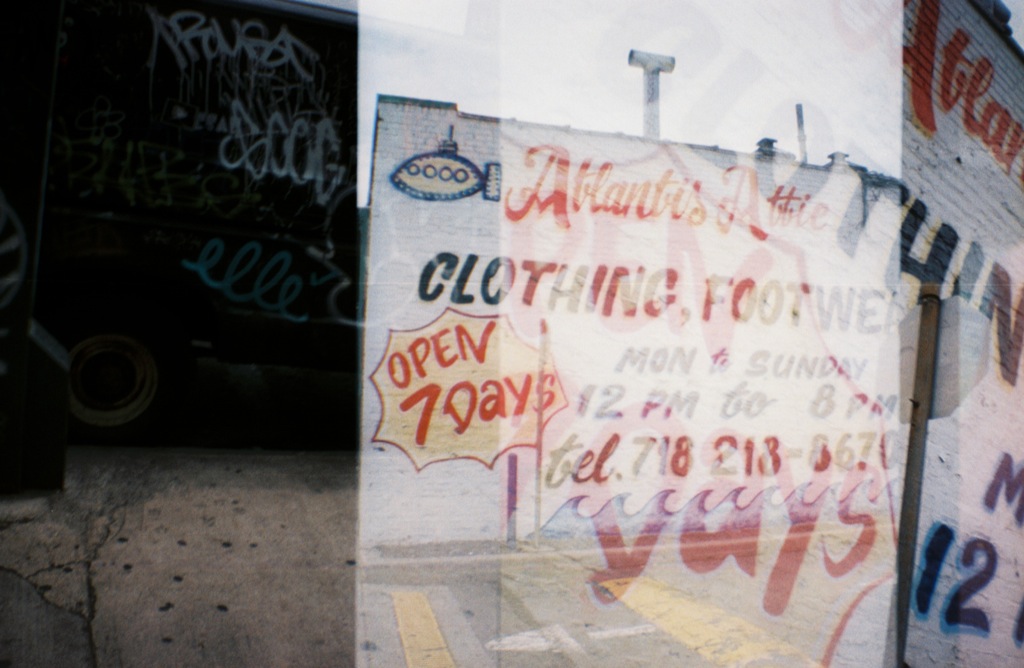 Atlantis Attic
CLOTHING, FOOTWEA
OPEN
7 Days
MON to SUNDAY
12 PM to 8 PM
tel. 718 218-867
elle
Atlan
HIN
Days
M
12